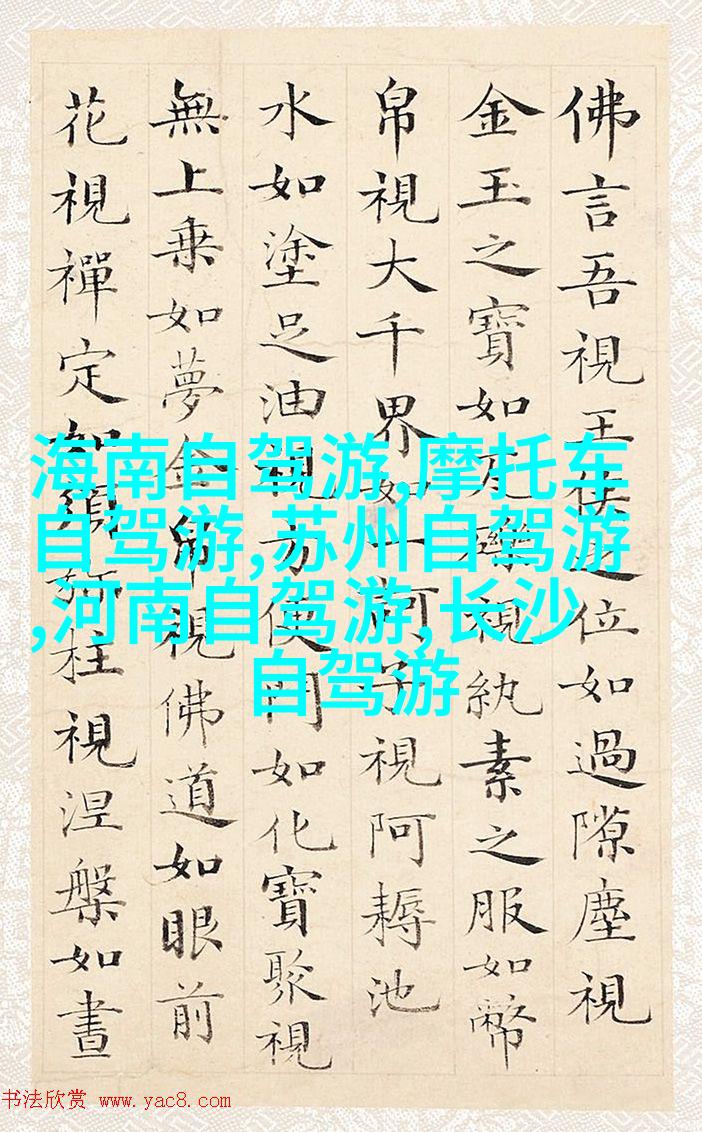 佛言吾視王侯之位如過隙塵視
金玉之寶如瓦礫視紈素之服如幣
帛視大千界如一訶子視阿耨池
水如塗足油視方便門如化寶聚視
無上乗如夢金帛視佛道如眼前
花視禪定如須彌柱視涅槃如晝
海南自驾游,摩托车
自驾游,苏州自驾游
,河南自驾游,长沙
自驾游
书法欣赏 www.yac8.com